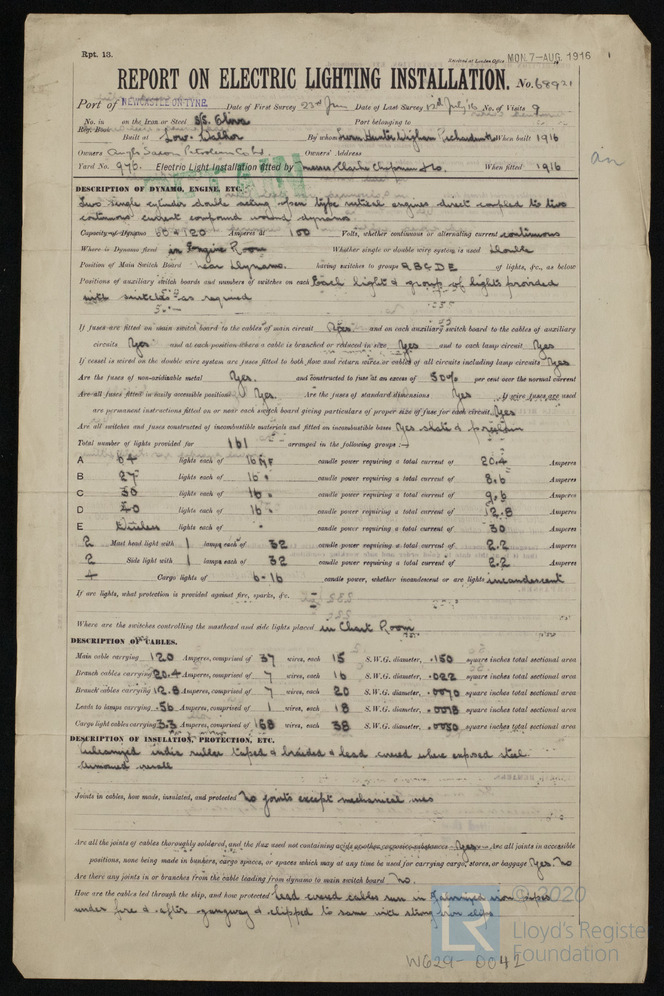 Rpt. 13.
Received at London Office MON. 7-AUG. 1916
REPORT ON ELECTRIC LIGHTING INSTALLATION. No. 68921
Port of NEWCASTLE-ON-TYNE Date of First Survey 23rd Jun Date of Last Survey 12th July 16 No. of Visits 9
No. in Reg. Book on the Iron or Steel S/S. Elona Port belonging to
Built at Low Walker By whom When built 1916
Owners Anglo Saxon Petroleum Co Ld Owners' Address
Yard No. 975. Electric Light Installation fitted by Messrs Clarke Chapman & Co. When fitted 1916
DESCRIPTION OF DYNAMO, ENGINE, ETC.
Two single cylinder double acting open type vertical engines direct coupled to two
continuous current compound wound dynamos
Capacity of Dynamo 120 Amperes at 100 Volts, whether continuous or alternating current continuous
Where is Dynamo fixed in Engine Room Whether single or double wire system is used Double
Position of Main Switch Board near Dynamo. having switches to groups A B C D E of lights, &c., as below
Positions of auxiliary switch boards and numbers of switches on each Each light & group of lights provided
with switches as required
If fuses are fitted on main switch board to the cables of main circuit Yes and on each auxiliary switch board to the cables of auxiliary
circuits Yes and at each position where a cable is branched or reduced in size Yes and to each lamp circuit Yes
If vessel is wired on the double wire system are fuses fitted to both flow and return wires or cables of all circuits including lamp circuits Yes
Are the fuses of non-oxidizable metal Yes. and constructed to fuse at an excess of 50% per cent over the normal current
Are all fuses fitted in easily accessible positions Yes. Are the fuses of standard dimensions Yes If wire fuses are used
are permanent instructions fitted on or near each switch board giving particulars of proper size of fuse for each circuit Yes
Are all switches and fuses constructed of incombustible materials and fitted on incombustible bases Yes slate & porcelain
Total number of lights provided for 161 arranged in the following groups :—
A 64 lights each of 16 candle power requiring a total current of 20.4 Amperes
B 27 lights each of 16 " candle power requiring a total current of 8.6 Amperes
C 30 lights each of 16 " candle power requiring a total current of 9.6 Amperes
D 40 lights each of 16 " candle power requiring a total current of 12.8 Amperes
E Wireless lights each of " candle power requiring a total current of 30 Amperes
2 Mast head light with 1 lamps each of 32 candle power requiring a total current of 2.2 Amperes
2 Side light with 1 lamps each of 32 candle power requiring a total current of 2.2 Amperes
4 Cargo lights of 6-16 candle power, whether incandescent or arc lights incandescent
If arc lights, what protection is provided against fire, sparks, &c.
Where are the switches controlling the masthead and side lights placed in Chart Room
DESCRIPTION OF CABLES.
Main cable carrying 120 Amperes, comprised of 37 wires, each 15 S.W.G. diameter, .150 square inches total sectional area
Branch cables carrying 20.4 Amperes, comprised of 7 wires, each 16 S.W.G. diameter, .022 square inches total sectional area
Branch cables carrying 12.8 Amperes, comprised of 7 wires, each 20 S.W.G. diameter, .0070 square inches total sectional area
Leads to lamps carrying .56 Amperes, comprised of 1 wires, each 18 S.W.G. diameter, .0018 square inches total sectional area
Cargo light cables carrying 3.3 Amperes, comprised of 168 wires, each 38 S.W.G. diameter, .0050 square inches total sectional area
DESCRIPTION OF INSULATION, PROTECTION, ETC.
Vulcanized india rubber taped & braided & lead covered where exposed steel
armoured
Joints in cables, how made, insulated, and protected No joints except mechanical ones
Are all the joints of cables thoroughly soldered, and the flux used not containing acids or other corrosive substances Yes Are all joints in accessible
positions, none being made in bunkers, cargo spaces, or spaces which may at any time be used for carrying cargo, stores, or baggage Yes, No
Are there any joints in or branches from the cable leading from dynamo to main switch board No.
How are the cables led through the ship, and how protected Lead covered cables run in galvanized iron pipes
under fore & after gangway & clipped to same with strong iron clips
© 2020
Lloyd's Register
Foundation
LR
W629-0041